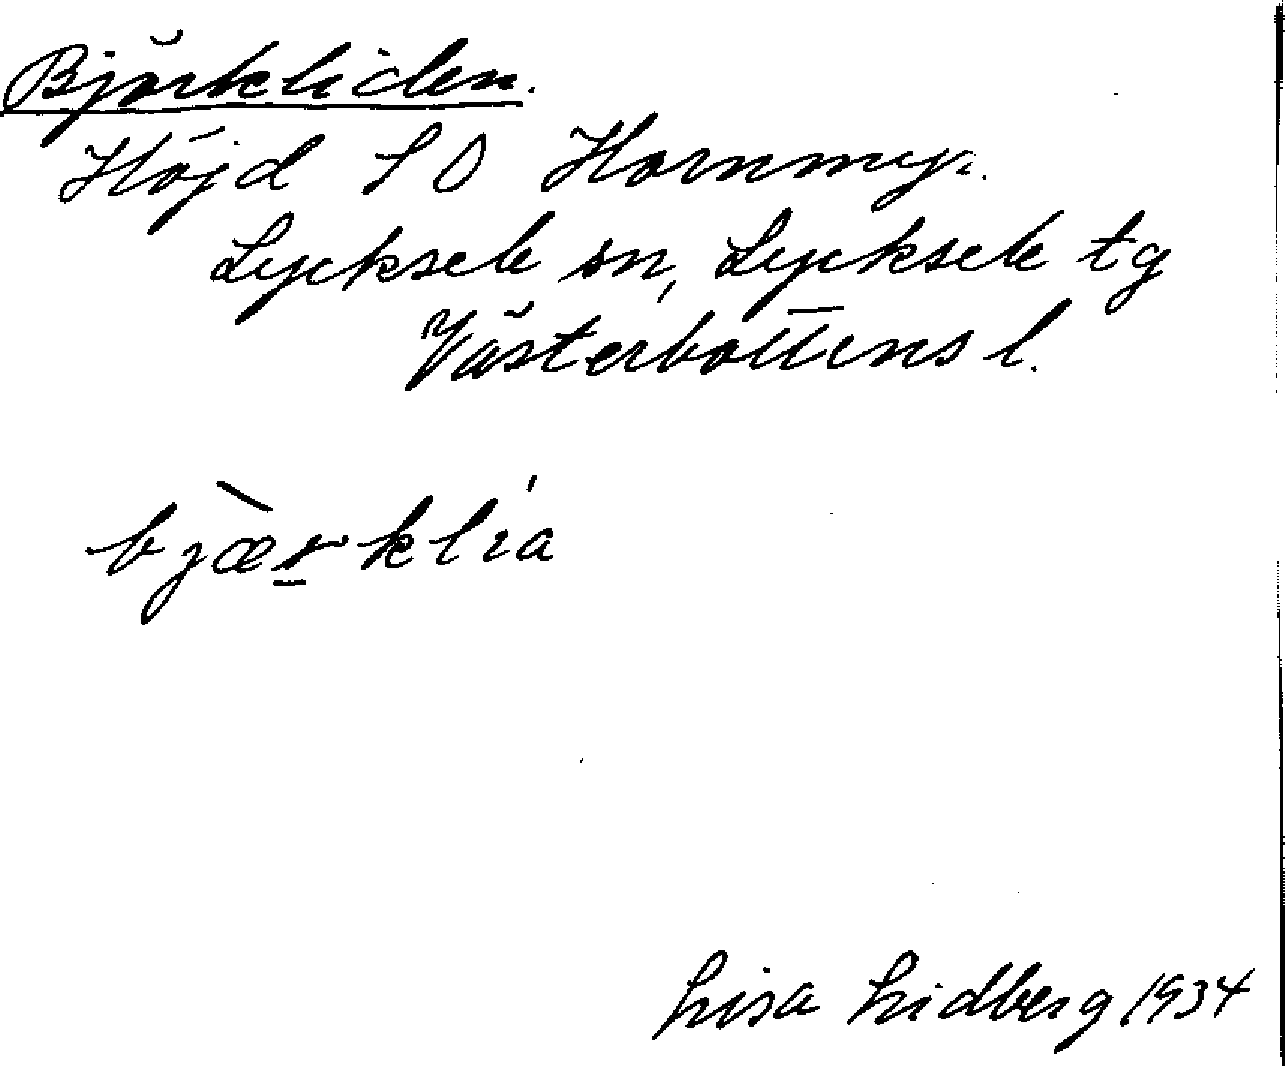 Björkliden.
Höjd SO Hornmyr.
Lycksele sn, Lycksele tg
Västerbottens l.
bjæ̀rklia
Lisa Lidberg 1934